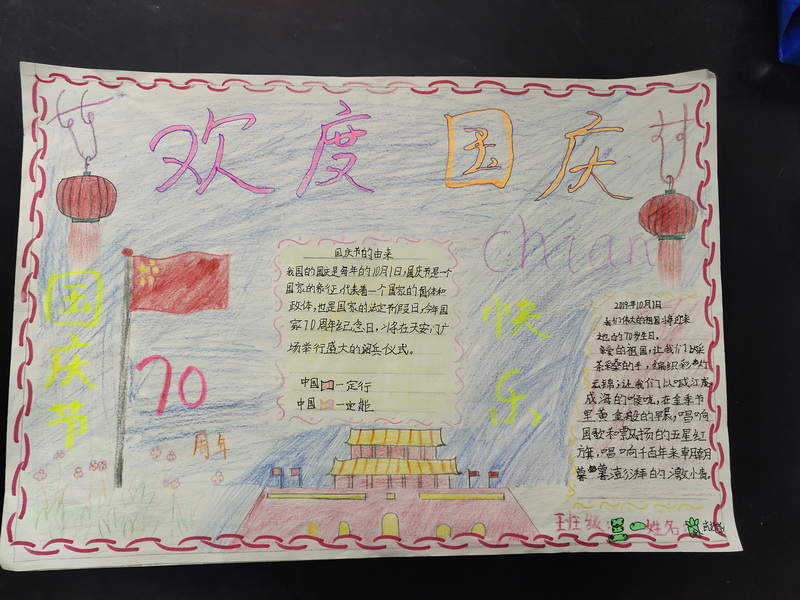 欢度国庆
chian
国庆节
快乐
70
周年
国庆节的由来
我国的国庆是每年的10月1日,国庆节是一个
国家的象征,代表着一个国家的国体和
政体,也是国家的法定节假日,今年国
家70周年纪念日,将在天安门广
场举行盛大的阅兵仪式。
中国一定行
中国一定能
2019年10月1日
我们伟大的祖国将迎来
她的70岁生日。
亲爱的祖国,让我们以采
茶采桑的手,编织彩
云锦;让我们以喊江
喊海的喉咙,在金季节
里黄金般的早晨,唱响
国歌和飘扬的五星红
旗,唱响千百年来
澎湃的激情。
班级: 姓名: